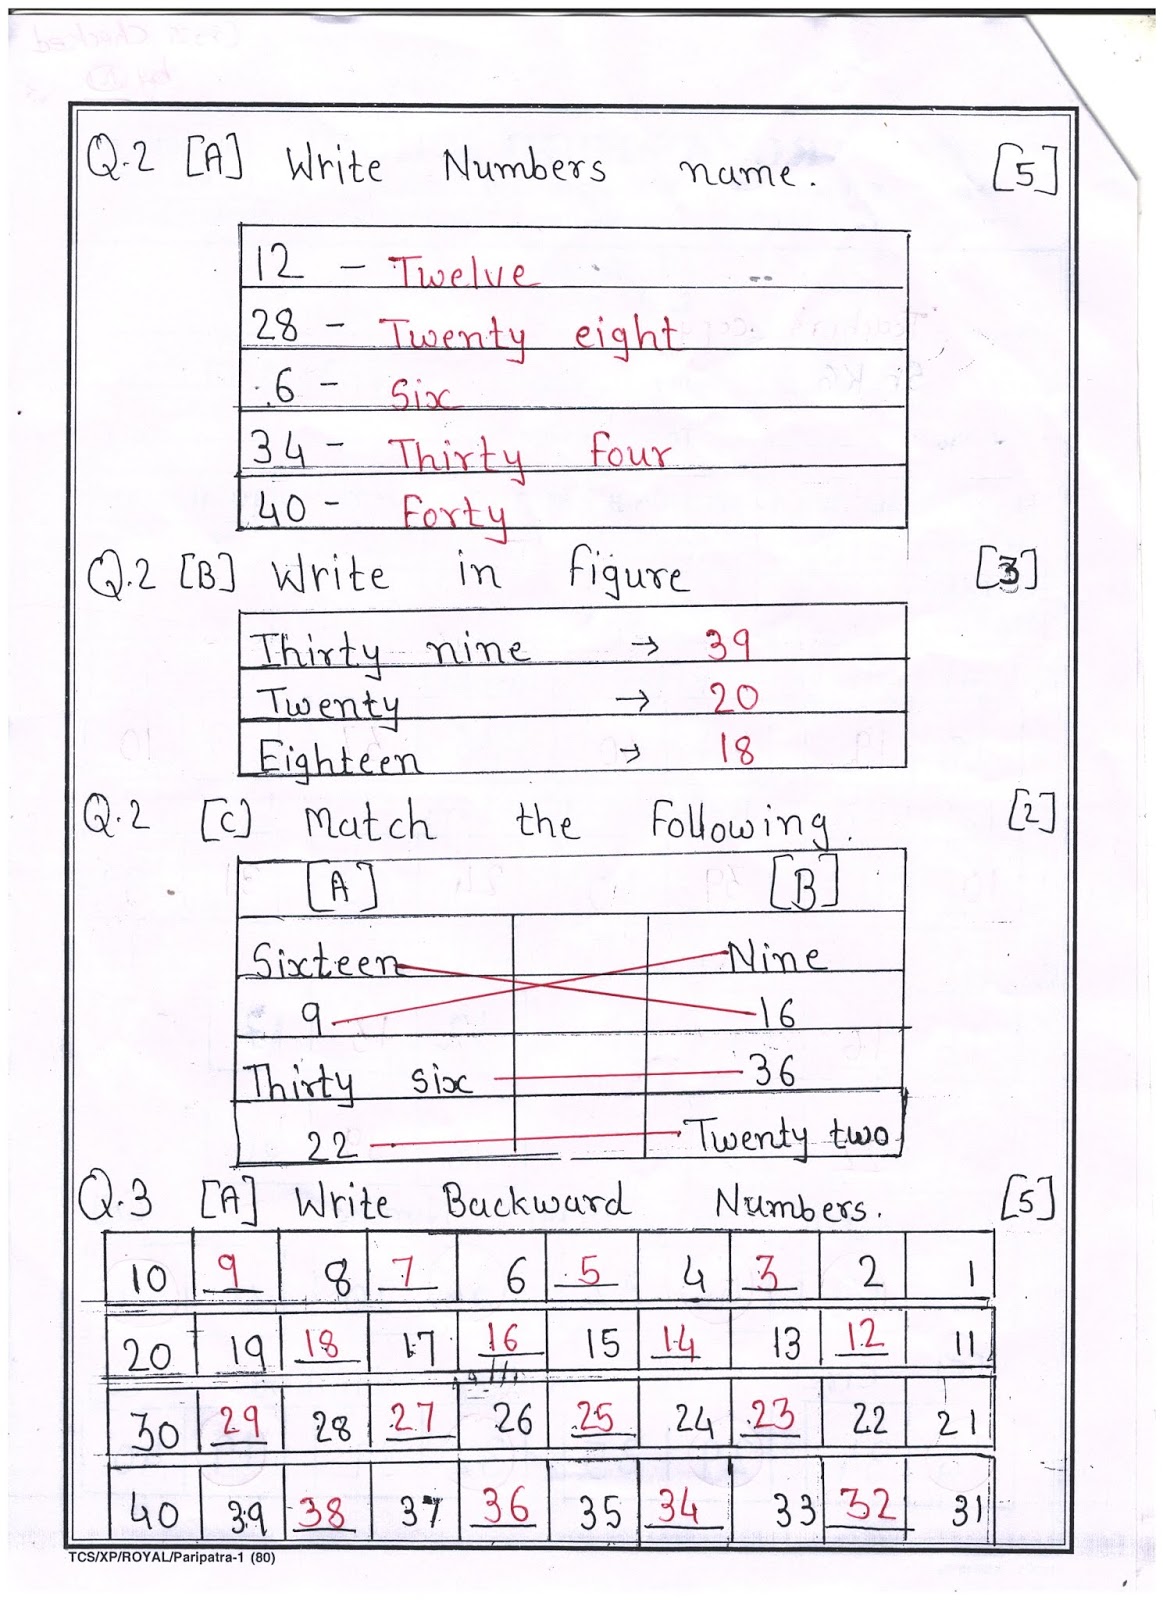 Q.2 [A] Write Numbers name. [5]
12 - Twelve
28 - Twenty eight
6 - Six
34 - Thirty four
40 - Forty
Q.2 [B] Write in figure [3]
Thirty nine → 39
Twenty → 20
Eighteen → 18
Q.2 [C] Match the Following. [2]
[A] [B]
Sixteen Nine
9 16
Thirty six 36
22 Twenty two
Q.3 [A] Write Backward Numbers. [5]
10 9 8 7 6 5 4 3 2 1
20 19 18 17 16 15 14 13 12 11
30 29 28 27 26 25 24 23 22 21
40 39 38 37 36 35 34 33 32 31
TCS/XP/ROYAL/Paripatra-1 (80)